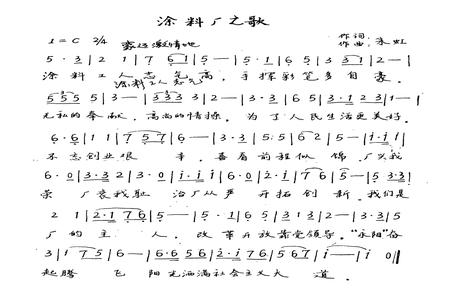 涂料厂之歌
1=C 2/4 豪迈激情地 作词:
作曲: 朱虹
5·3|2·1|7 6 1|5—|5·1|6 5|3 3 1|2—|
涂料工人志气高,手撑彩笔多自豪
涂料工人志气
5 5 5 5|3—|3 3 3 3|2—|3·3|6 5|3·1 2 3|1—|
无私的奉献,高尚的情操。为了人民生活更美好。
6·6|1 1|7 5 7|6—|3·3|5·5|6 2|5—|i·i|
不忘创业艰辛,喜看前程似锦,厂兴我
6·0|3·2 3·0|i·i i|6·0|2·i|7 6|5—|5·3|
荣厂衰我耻治厂从严开拓创新。我们是
2 1|2·1 7 6|5—|5·1|6 5|3 1|2—|3·3|5
厂的主人,改革开放靠党领导。“永阳”奋
3|1 7 5|6—|6·6 5 6|2·i 7 6|5 6 7|i—|i 0‖
起腾飞阳光洒满社会主义大道。